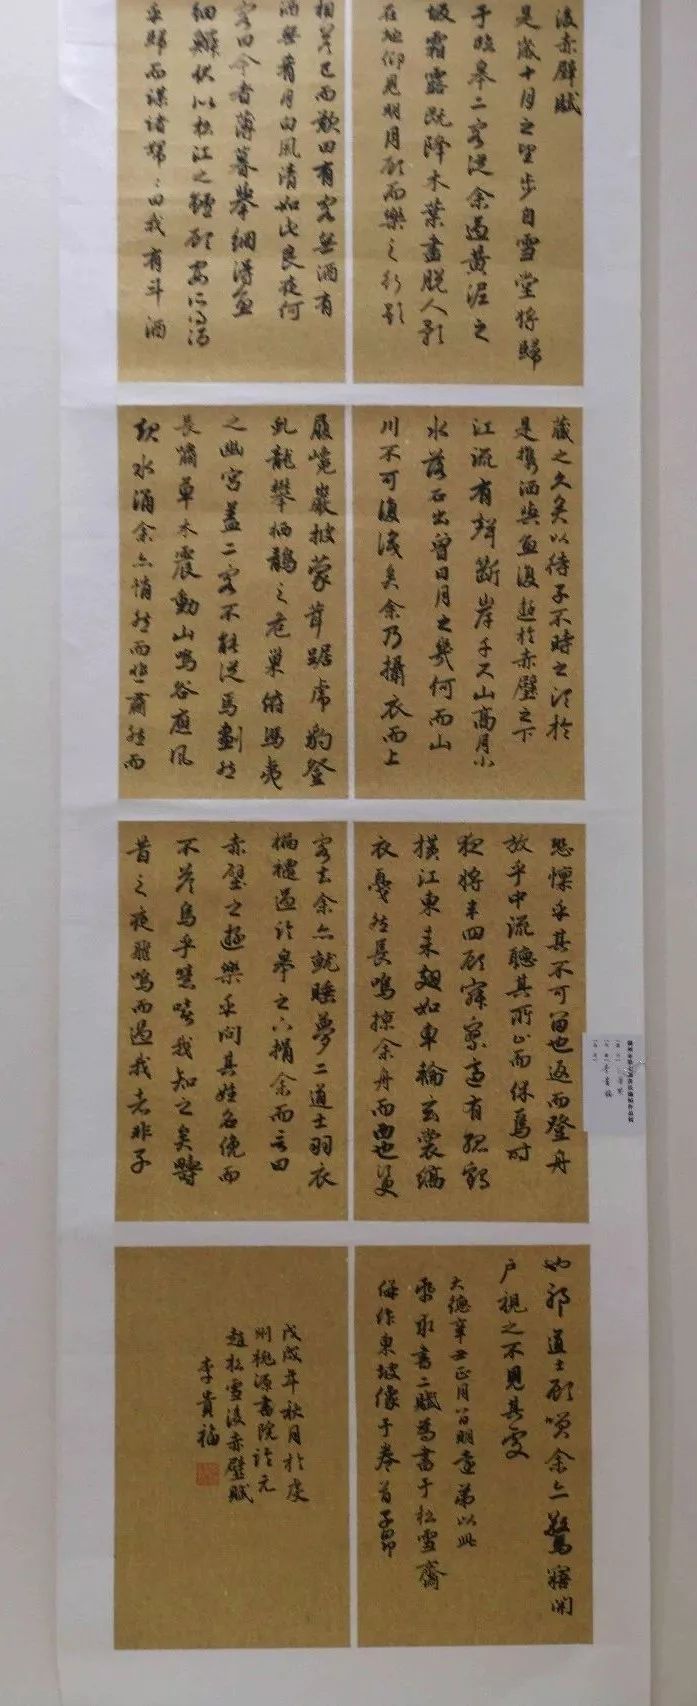 後赤壁賦
是歲十月之望步自雪堂將歸
于臨皋二客從余過黃泥之
坂霜露既降木葉盡脫人影
在地仰見明月顧而樂之行歌
相答已而歎曰有客無酒有
酒無肴月白風清如此良夜何
客曰今者薄暮舉網得魚
細鱗狀似松江之鱸顧安所得酒
乎歸而謀諸婦〻曰我有斗酒
藏之久矣以待子不時之須於
是攜酒與魚復遊於赤壁之下
江流有聲斷岸千尺山高月小
水落石出曾日月之幾何而山
川不可復識矣余乃攝衣而上
履巉巖披蒙茸踞虎豹登
虬龍攀栖鶻之危巢俯馮夷
之幽宮蓋二客不能從焉劃然
長嘯草木震動山鳴谷應風
起水涌余亦悄然而悲肅然而
恐懍乎其不可留也返而登舟
放乎中流聽其所止而休焉時
夜將半四顧寂寥適有孤鶴
橫江東來翅如車輪玄裳縞
衣戛然長鳴掠余舟而西也須
客去余亦就睡夢二道士羽衣
蹁躚過臨皋之下揖余而言曰
赤壁之遊樂乎問其姓名俛而
不答嗚乎噫嘻我知之矣疇
昔之夜飛鳴而過我者非子
也耶道士顧笑余亦驚寤開
戶視之不見其處
大德辛丑正月八日明遠弟以此
紙求書二賦為書于松雪齋
併作東坡像于卷首子昂
戊戌年秋月於虔
州桃源書院臨元
趙松雪後赤壁賦
李貴福